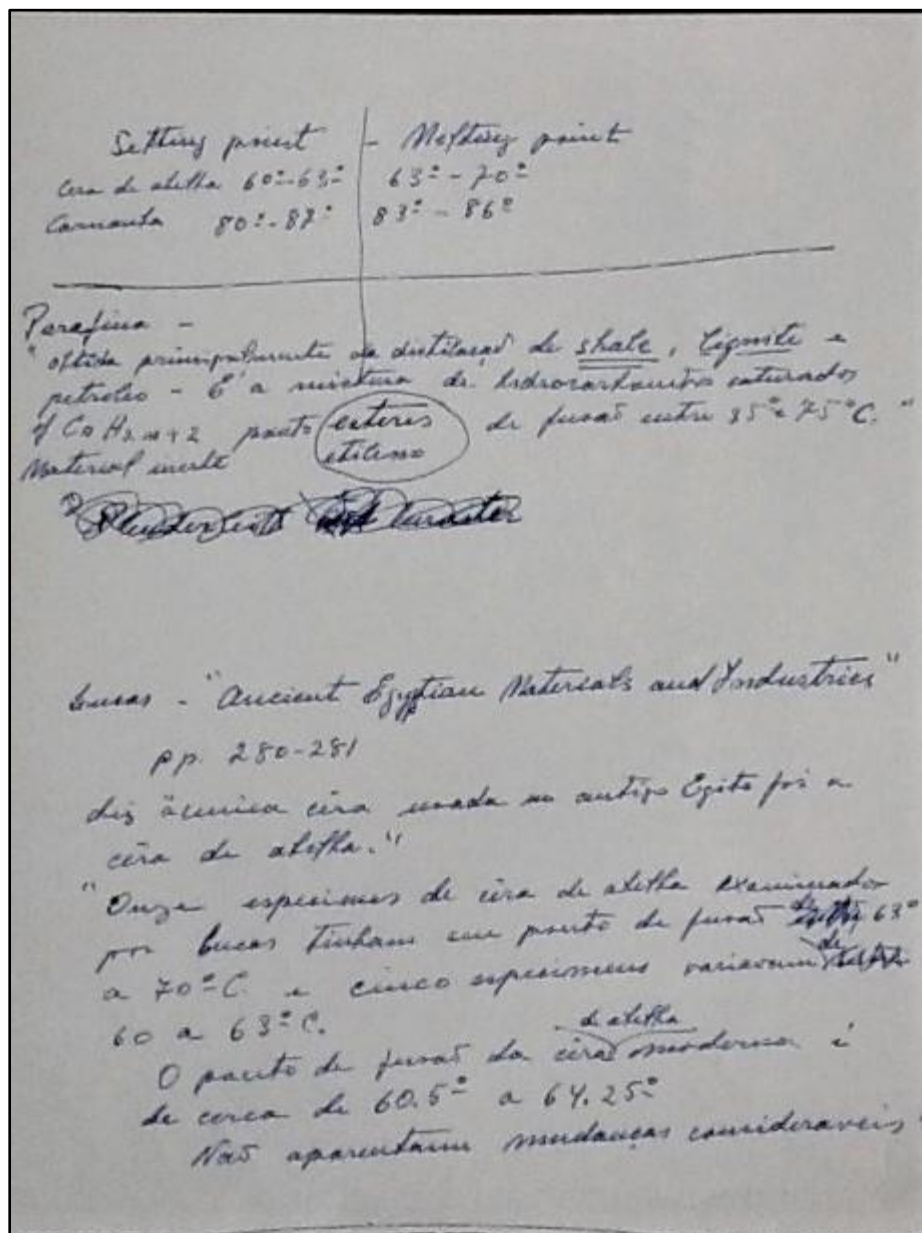 Setting point - Melting point
Cera de abelha 60º-63º 63º - 70º
Carnauba 80º-87º 83º - 86º
Parafina -
"obtida principalmente da destilação de shale, lignite e
petroleo - É a mistura de hidrocarbonetos saturados
of Cn H2n+2 ponto de fusão entre 35º e 75ºC."
esteres
etileno
Material inerte
Lucas - "Ancient Egyptian Materials and Industries"
pp. 280-281
diz "a unica cêra usada no antigo Egito foi a
cêra de abelha."
"Onze especimes de cêra de abelha examinados
por Lucas tinham seu ponto de fusão de 63º
a 70ºC. e cinco especimens variavam de
60 a 63ºC.
O ponto de fusão da cêra de abelha moderna é
de cerca de 60.5º a 64.25º
Não aparentam mudanças consideraveis.